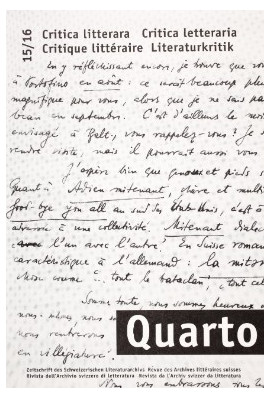 15/16
Critica litterara Critica letteraria
Critique littéraire Literaturkritik
En y réfléchissant encore, je trouve que vo
à Portofino en août: ce serait beaucoup plu
magnifique pour vous, alors que je ne sais pa
beau en septembre. C'est d'ailleurs le
envisagé à , vous rappelez-vous? Je
rendre visite, mais il pourrait aussi vous
J'espère bien que et pieds
Quant à Adieu mitenant, grave et
Good-bye you all au sud des Etats-Unis, c'est à
adressé à une collectivité. Mitenant
l'un avec l'autre? En Suisse roman
caractéristique à l'allemand: la
comme tout le bataclan,
Somme toute nous sommes heureux
nous
nous rentrerons
en villégiature.
Quarto
Zeitschrift des Schweizerischen Literaturarchivs Revue des Archives littéraires suisses
Rivista dell'Archivio svizzero di letteratura Revista da l'Archiv svizzer da litteratura
Nous vous embrassons